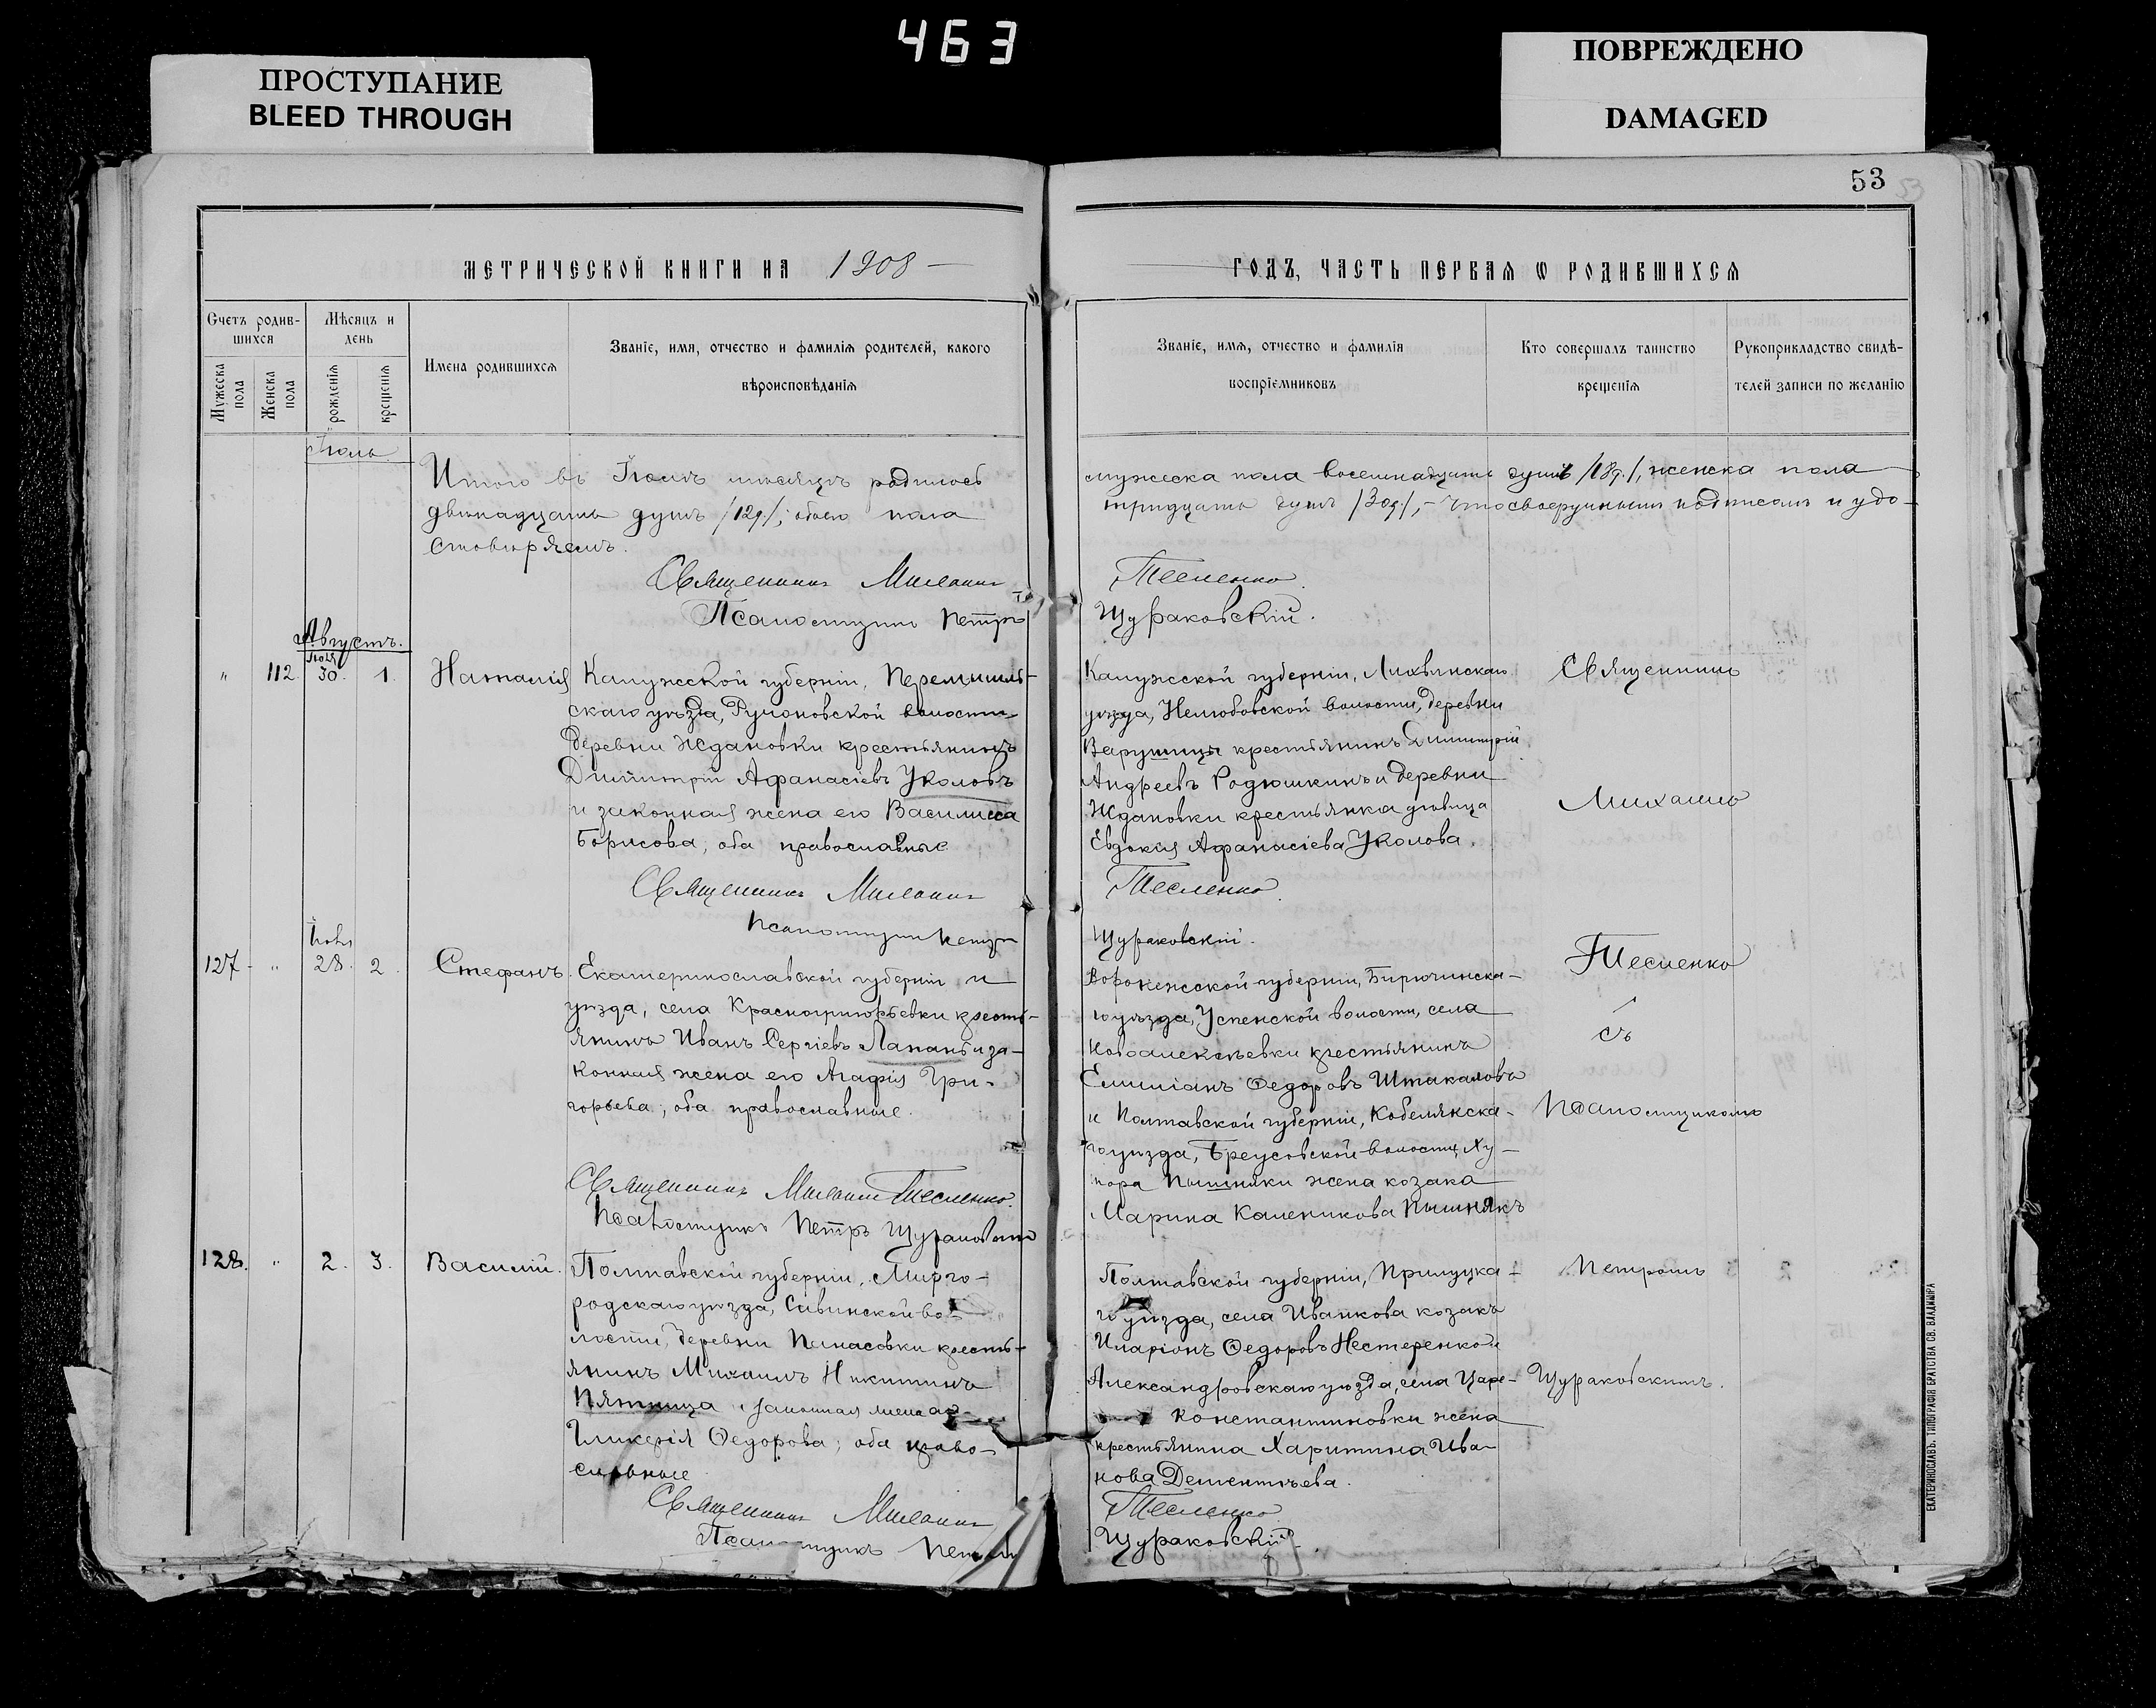 463
ПРОСТУПАНИЕ
BLEED THROUGH
ПОВРЕЖДЕНО
DAMAGED
53
МЕТРИЧЕСКОЙ КНИГИ НА 1908
Счетъ родив-
шихся
Мѣсяцъ и
день
Мужеска
пола
Женска
пола
рожденія
крещенія
Имена родившихся
Званіе, имя, отчество и фамилія родителей, какого
вѣроисповѣданія
Іюль
Итого въ Іюлѣ мѣсяцѣ родилось
двѣнадцать душъ /12д./; обоего пола
стовѣряемъ.
Священникъ Михаилъ
Псаломщикъ Петръ
Августъ.
" 112. Іюля 30. 1. Наталія
Калужской губерніи, Перемышль-
скаго уѣзда, волости
деревни Ждановки крестьянинъ
Димитрій Афанасіевъ Уколовъ
и законная жена его Васили��са
Борисова, оба православные
Священникъ Михаилъ
Псаломщикъ Петръ
127 " Іюля 28. 2. Стефанъ.
Екатеринославской губерніи и
уѣзда, села Красногригорьевки кресть-
янинъ Иванъ Сергіевъ Лапань и за-
конная жена его Агафія Гри-
горьева, оба православные.
Священникъ Михаилъ Тесленко.
Псаломщикъ Петръ Щураковскій
128. " 2. 3. Василій.
Полтавской губерніи, Мирго-
родскаго уѣзда, Савинской во-
лости, деревни кресть-
янинъ Михаилъ Никитинъ
Пятница и законная жена его
Гликерія Ѳедорова; оба право-
славные
Священникъ Михаилъ
Псаломщикъ Петръ
ГОДЪ, ЧАСТЬ ПЕРВАЯ Ѡ РОДИВШИХСЯ
Званіе, имя, отчество и фамилія
воспріемниковъ
Кто совершалъ таинство
крещенія
Рукоприкладство свидѣ-
телей записи по желанію
мужеска пола восемнадцать душъ /18д./, женска пола
тридцать душъ /30д./, – что своеручнымъ подписомъ и удо-
Тесленко.
Щураковскій.
Калужской губерніи, Лихвинскаго
уѣзда, Нелюбовской волости, деревни
крестьянинъ Димитрій
Андреевъ Родюшкинъ и деревни
Ждановки крестьянка дѣвица
Евдокія Афанасіева Уколова.
Тесленко.
Щураковскій.
Воронежской губерніи, Бирюченска-
го уѣзда, Успенской волости, села
Новоалексѣевки крестьянинъ
Емиліанъ Ѳедоровъ Штакаловъ
и Полтавской губерніи, Кобелякска-
го уѣзда, Бреусовской волости, Ху-
тора жена козака
Марина Каленикова Пышнякъ
Полтавской губерніи, Прилуцка-
го уѣзда, села Иванкова козакъ
Иларіонъ Ѳедоровъ Нестеренко и
Александровскаго уѣзда, села Царе-
Константиновки жена
крестьянина Харитина Ива-
нова Дементьева.
Тесленко.
Щураковскій.
Священникъ
Михаилъ
Тесленко
съ
Псаломщикомъ
Петромъ
Щураковскимъ.
ЕКАТЕРИНОСЛАВЪ. ТИПОГРАФІЯ БРАТСТВА СВ. ВЛАДИМІРА